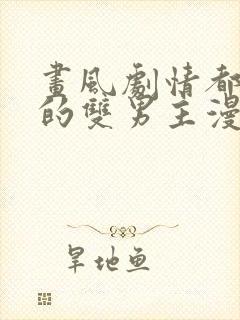 畫風劇情都
的雙男主漫
旱地鱼